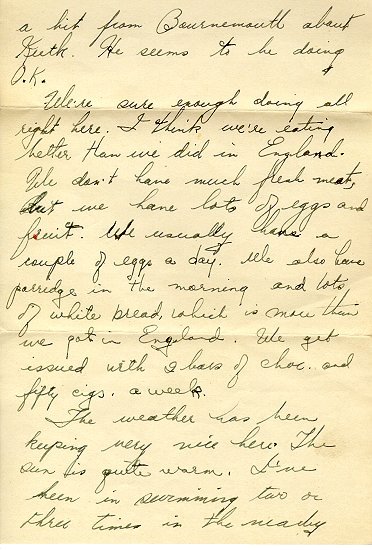 a bit from Bournemouth about
Keith. He seems to be doing
O.K.
We're sure enough doing all
right here. I think we're eating
better than we did in England.
We don't have much fresh meat,
but we have lots of eggs and
fruit. We usually have a
couple of eggs a day. We also have
porridge in the morning and lots
of white bread, which is more than
we got in England. We get
issued with 2 bars of choc. and
fifty cigs. a week.
The weather has been
keeping very nice here. The
sun is quite warm. I've
been in swimming two or
three times in the nearby